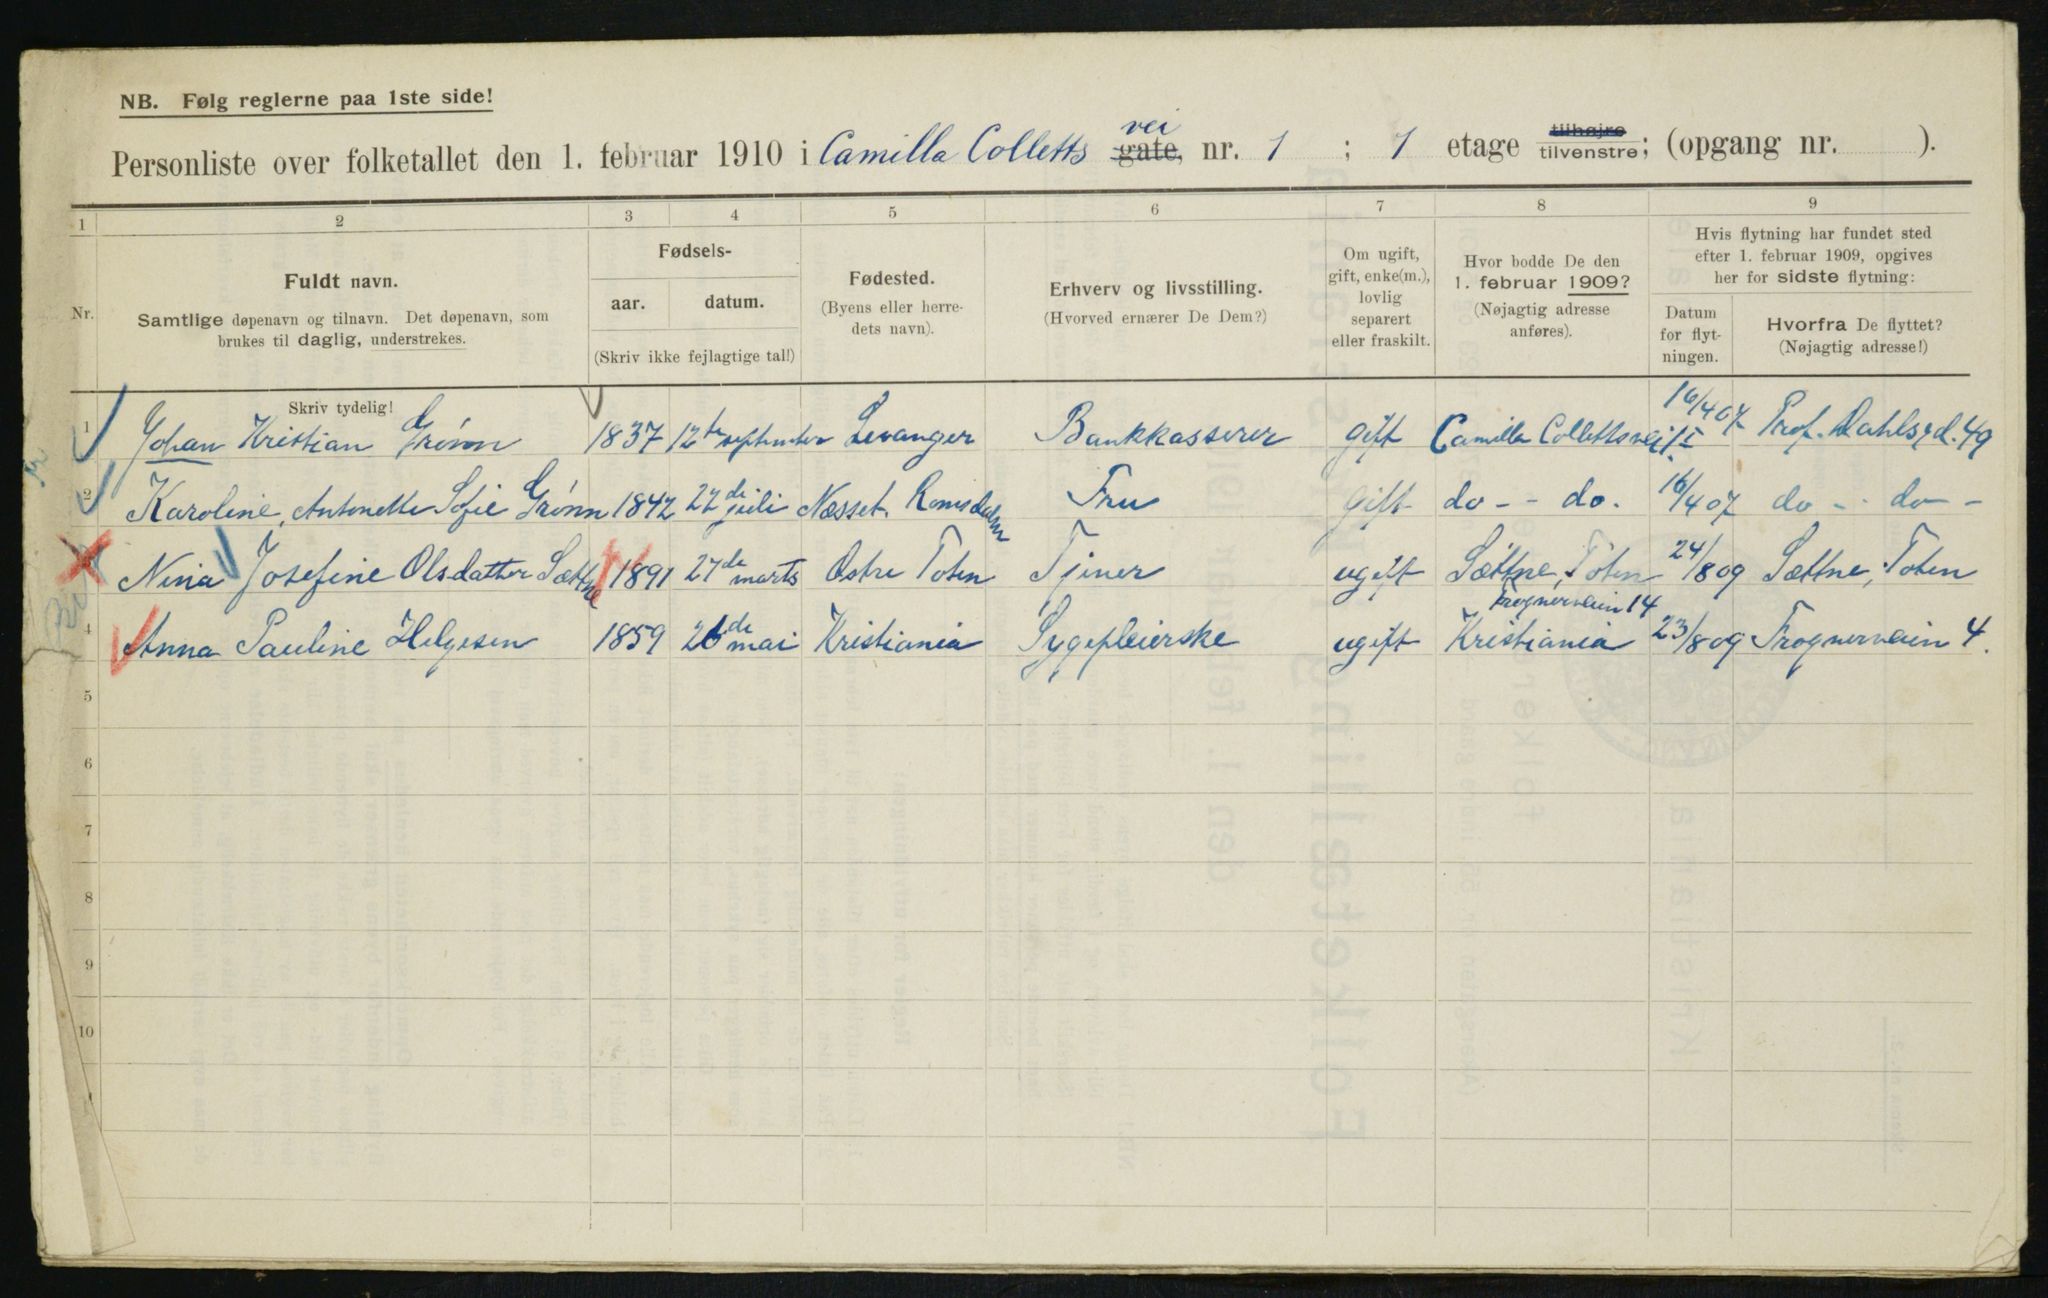 NB. Følg reglerne paa 1ste side!
Personliste over folketallet den 1. februar 1910 i Camilla Colletts gate, vei nr. 1 ; 1 etage tilhøjre tilvenstre; (opgang nr. ).
1 2 3 4 5 6 7 8 9
Nr.
Fuldt navn.
Samtlige døpenavn og tilnavn. Det døpenavn, som
brukes til daglig, understrekes.
Fødsels-
aar. datum.
(Skriv ikke fejlagtige tal!)
Fødested.
(Byens eller herre-
dets navn).
Erhverv og livsstilling.
(Hvorved ernærer De Dem?)
Om ugift,
gift, enke(m.),
lovlig
separert
eller fraskilt.
Hvor bodde De den
1. februar 1909?
(Nøjagtig adresse
anføres).
Hvis flytning har fundet sted
efter 1. februar 1909, opgives
her for sidste flytning:
Datum
for flyt-
ningen.
Hvorfra De flyttet?
(Nøjagtig adresse!)
Skriv tydelig!
1 Johan Kristian Grønn 1837 12te september Levanger Bankkasserer gift Camilla Collettsvei 1 I 16/4 07 Prof. Dahlsgd. 49
2 Karoline, Antonette Sofie Grønn 1842 22de juli Næsset. Romsdalen Fru gift do - - do. 16/4 07 do - - do -
Nina Josefine Olsdatter Sættne 1891 27de marts Østre Toten Tjener ugift Sættne, Toten 24/8 09 Sættne, Toten
4 Anna Pauline Helgesen 1859 26de mai Kristiania Sygepleierske ugift Frognerveien 14 Kristiania 23/8 09 Frognerveien 4.
5
6
7
8
9
10